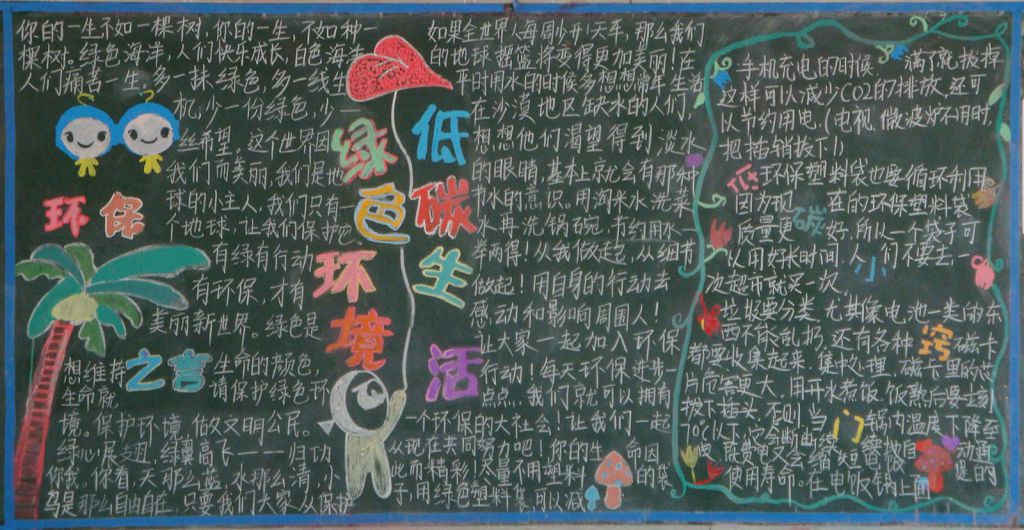 你的一生不如一棵树,你的一生,不如种一
棵树。绿色海洋,人们快乐成长,白色海洋
人们痛苦一生,多一抹绿色,多一线生
机,少一份绿色,少一
丝希望。这个世界因
我们而美丽,我们是地
球的小主人,我们只有一
个地球,让我们保护吧。
有绿有行动
有环保,才有
美丽新世界。绿色是
想维持
生命的颜色,
生命就
请保护绿色环
境。保护环境,做文明公民。
绿心展翅,绿翼高飞——归功
你我。你看天那么蓝,水那么清,小
鸟是那么自由自在,只要我们大家从保护
环保
之言
绿色环境
低碳生活
如果全世界人每周少开一天车,那么我们
的地球摇篮将变得更加美丽!在
平时用水的时候多想想常年生活
在沙漠地区缺水的人们,
想想他们渴望得到淡水
的眼睛,基本上就会有那种
节水的意识。用淘米水洗菜
水再洗锅碗,节约用水一
举两得!从我做起,从细节
做起!用自身的行动去
感动和影响周围人!
让大家一起加入环保
行动!每天环保进步一
点点,我们就可以拥有
一个环保的大社会!让我们一起
从现在共同努力吧!你的生命因
此而精彩!尽量不用塑料的袋
子,用绿色塑料袋,可以减
低碳小窍门
手机充电的时候,满了就拔掉
这样可以减少CO2的排放,还可
以节约用电(电视,微波炉不用时,
把插销拔下!)
环保塑料袋也要循环利用
因为现在的环保塑料袋
质量更好,所以一个袋子可
以用好长时间,人们不要去一
次超市就买一次
垃圾要分类,尤其像电池一类的东
西不能乱扔,还有各种磁卡
都要收集起来,集中处理,磁卡里的芯
片危害更大,用开水煮饭,饭熟后要立刻
拔下插头,否则当锅内温度下降至
70℃以下
使用寿命。在电饭锅上面